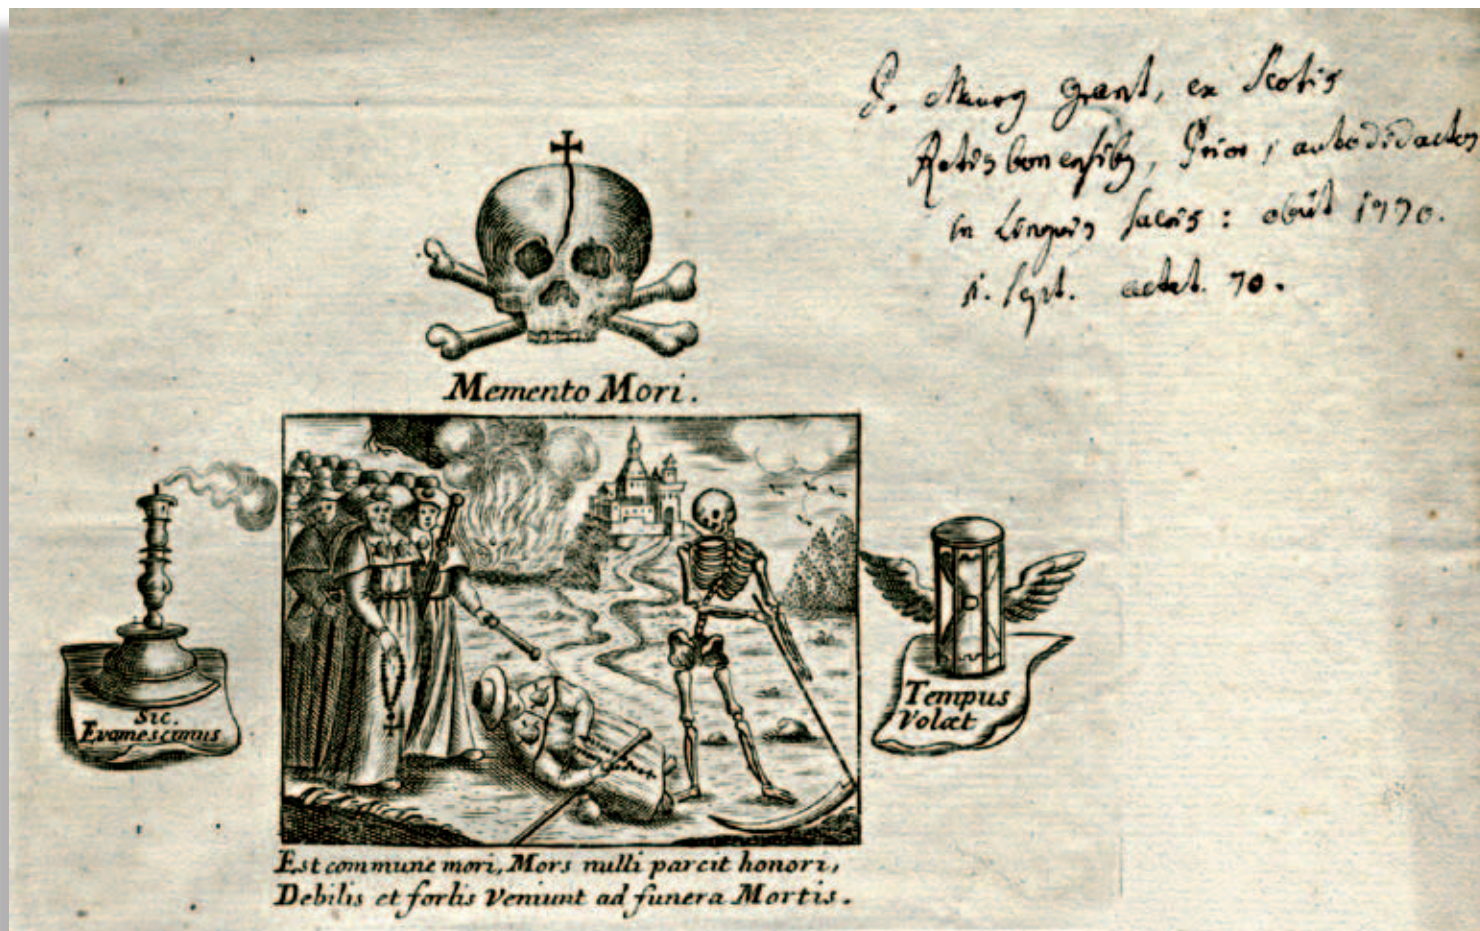 P. Maurus Grant, ex Scotis
Ratisbonensibus, Prior, autodidactus
in Linguis sacris: obiit 1770.
1. Sept. aetat. 70.
Memento Mori.
Sic.
Evanescimus
Tempus
Volat
Est commune mori, Mors nulli parcit honori,
Debilis et fortis Veniunt ad funera Mortis.